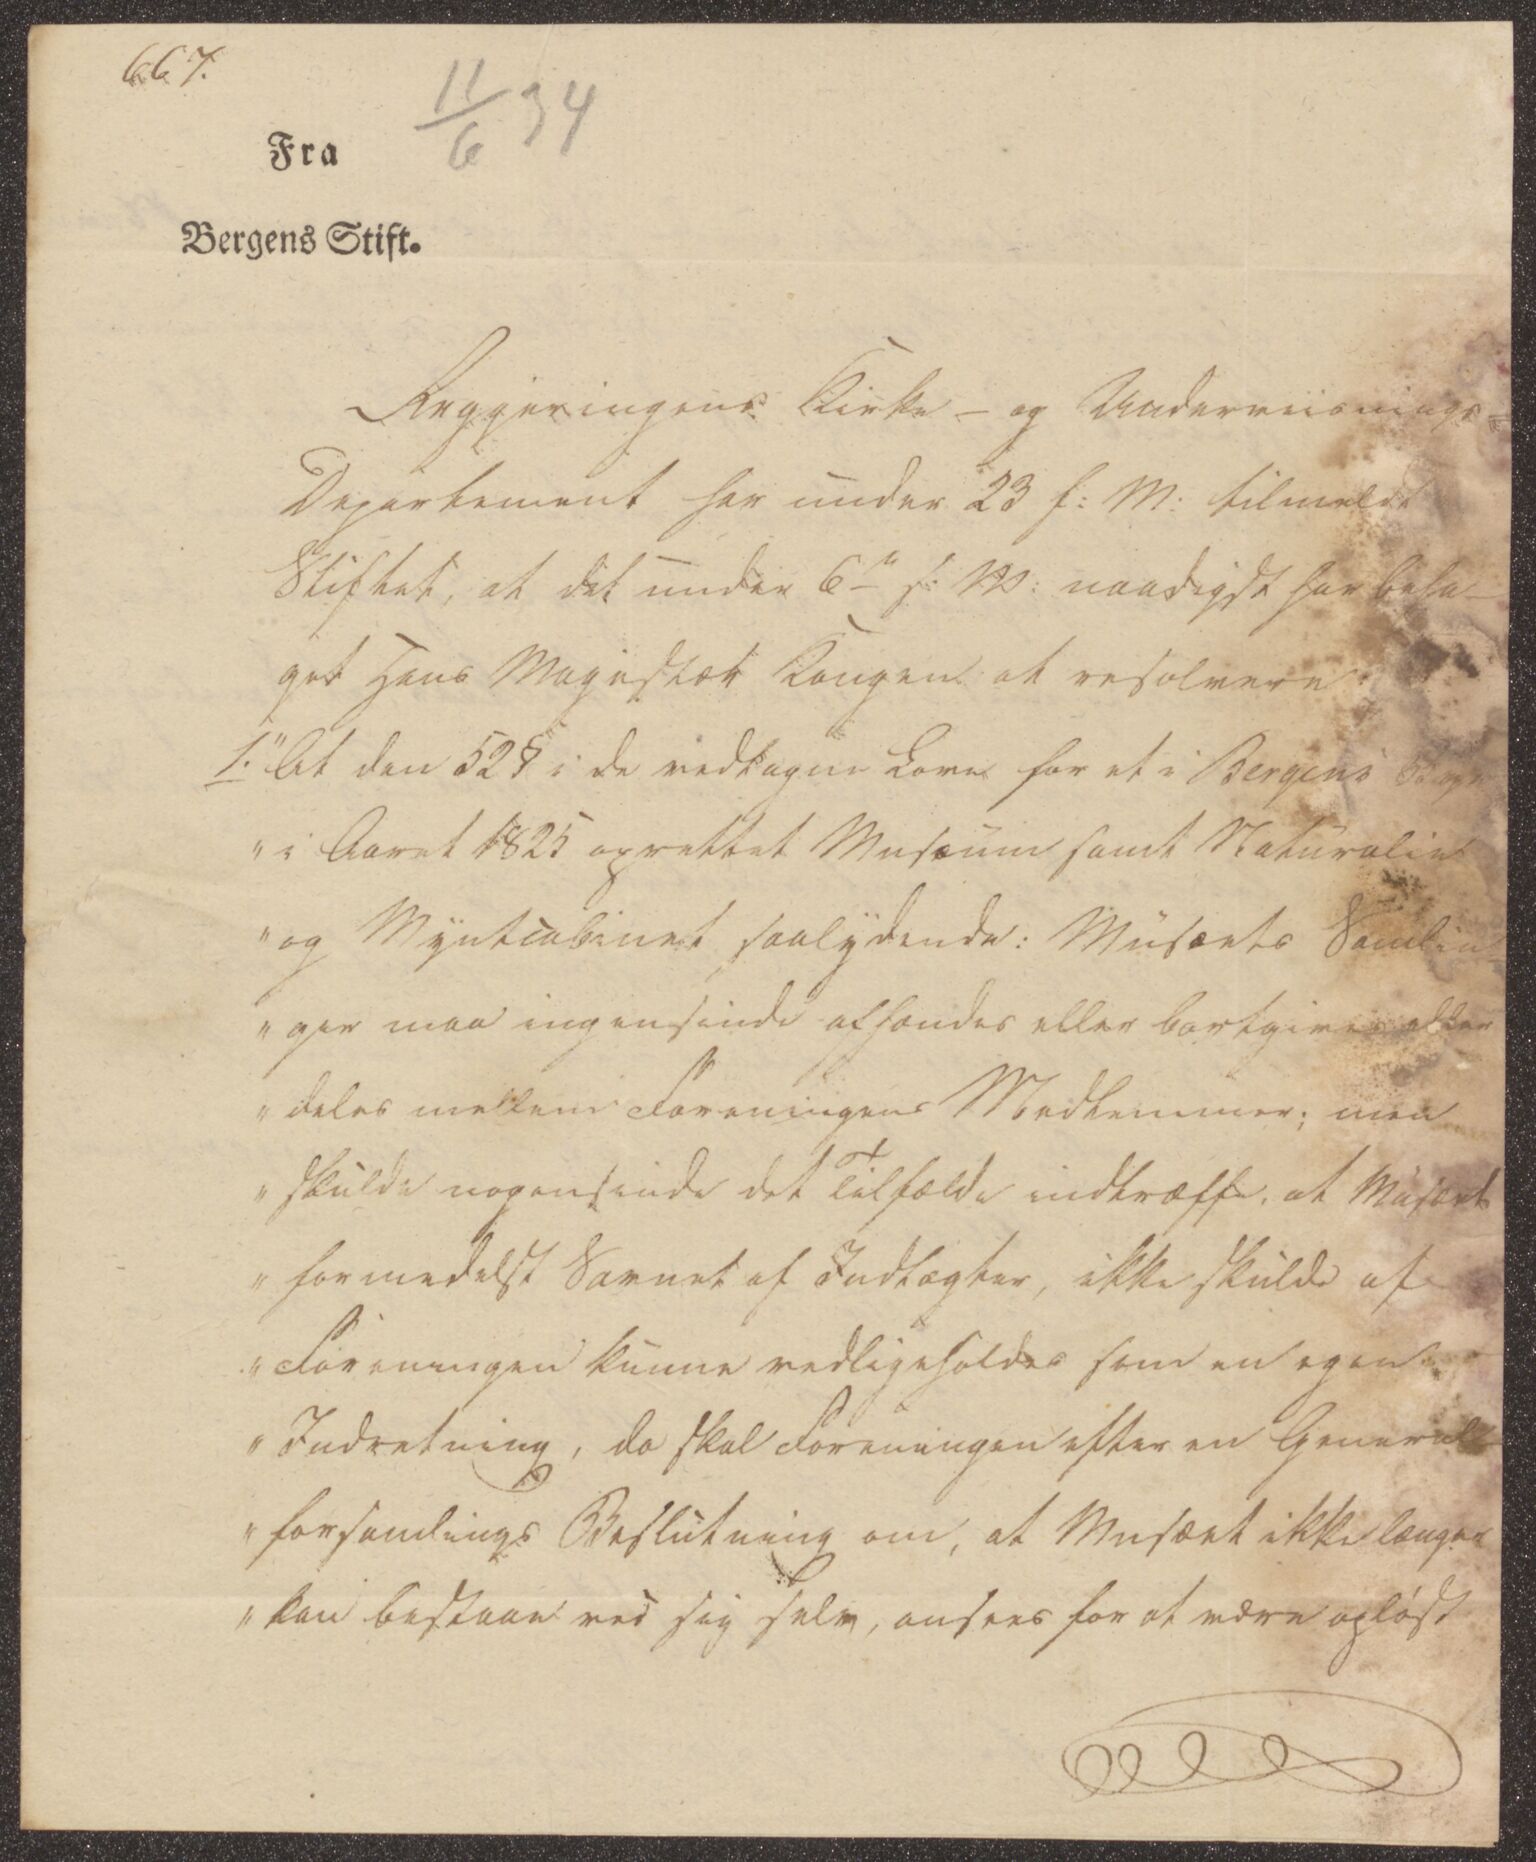 667.
11/6 34
Fra
Bergens Stift.
Regjeringens Kirke- og Underviisnings-
Departement har under 23 f: M: tilmeldt
Stiftet, at det under 6te s: M: naadigst har beha-
get Hans Majestæt Kongen at resolvere:
1. "At den 52 § i de vedtagne Love for et i Bergens Bye
" i Aaret 1825 oprettet Museum samt Naturalie
" og Myntcabinet saalydende: Musæets Samlin
" ger maa ingensinde afhændes eller bortgives eller
" deles mellem Foreningens Medlemmer; men
" skulde nogensinde det Tilfælde indtræffe, at Musæet
" formedelst Savnet af Indtægter, ikke skulde af
" Foreningen kunne vedligeholdes som en egen
" Indretning, da skal Foreningen efter en General
" forsamlings Beslutning om, at Musæet ikke længer
" kan bestaae ved sig selv, ansees for at være opløst